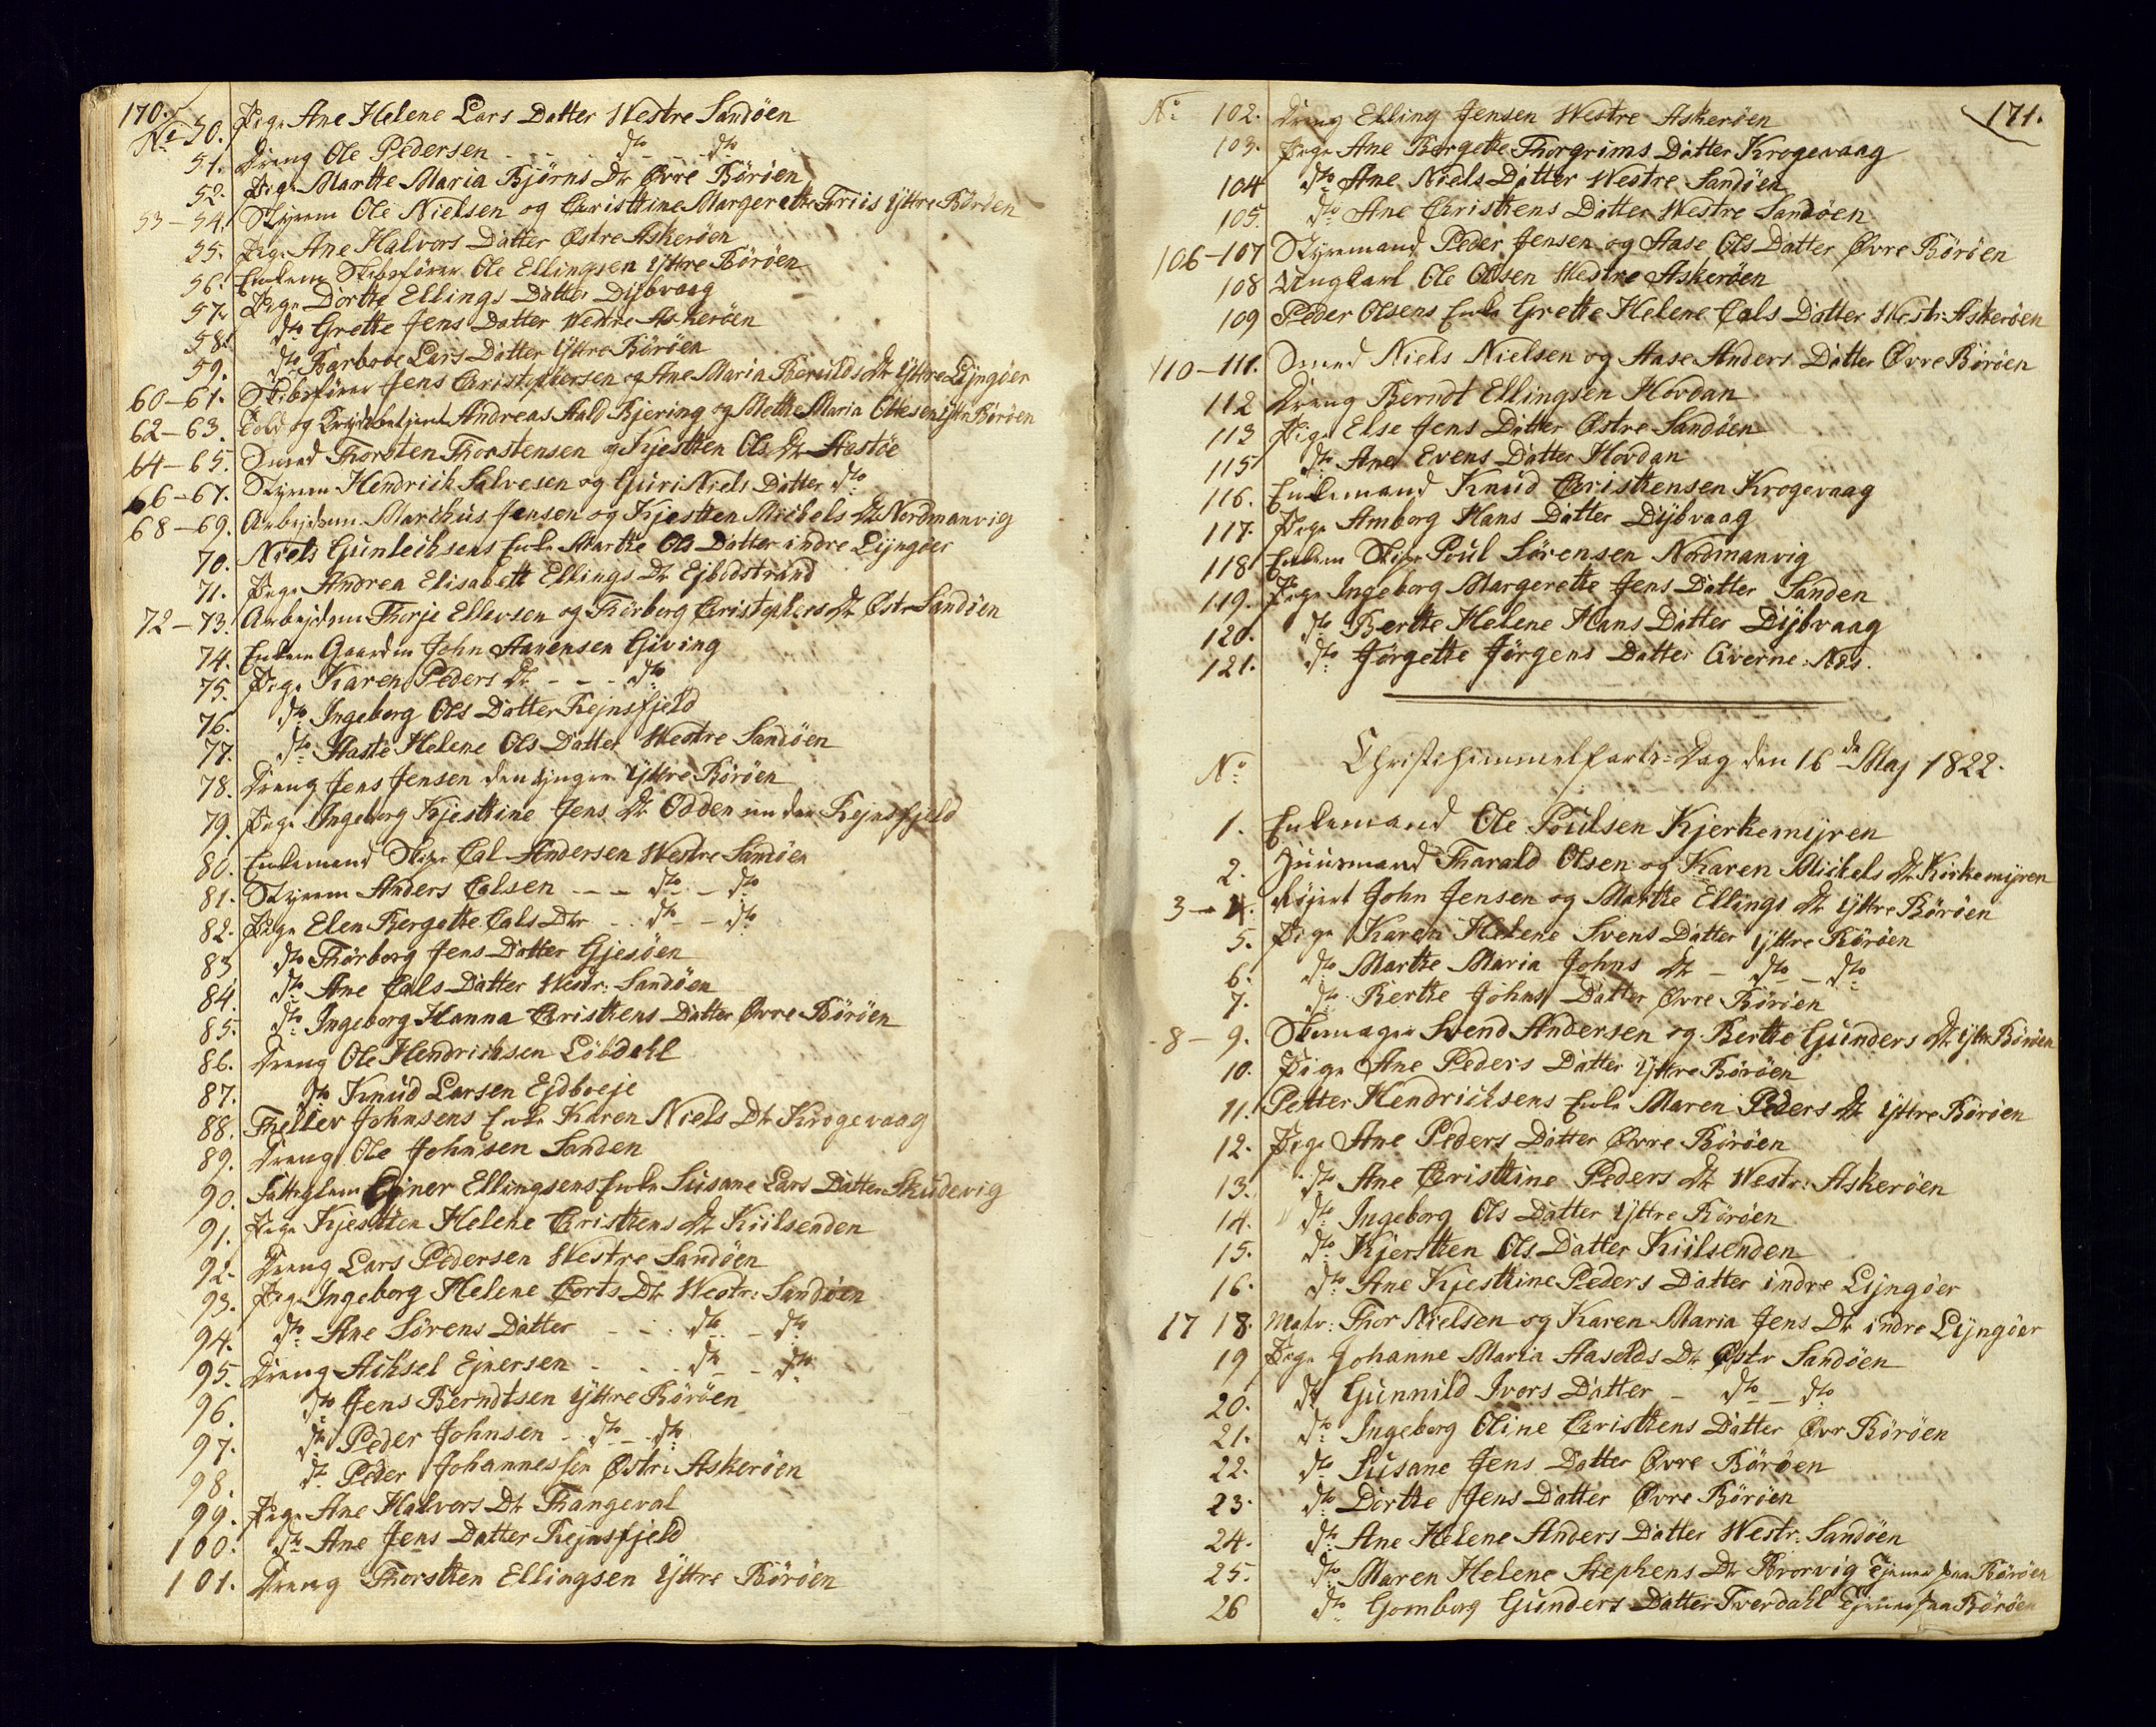 170.
No 50. Pige Ane Helene Lars Datter Westre Sandöen
51. Dreng Ole Pedersen - - - dto - dto
52. Pige Marthe Maria Bjørns Dtr Øvre Böröen
53-54. Styrm Ole Nielsen og Christine Margerethe Friis Yttre Böröen
55. Pige Ane Halvors Datter Østre Askeröen
56. Enkem Skibsfører Ole Ellingsen Yttre Böröen
57. Pige Dorthe Ellings Datter Dybvaag
58. dto Grethe Jens Datter Westre Askeröen
59. dto Barboe Lars Datter Yttre Böröen
60-61. Skibsfører Jens Christophersen og Ane Maria Berulds Dtr Yttre Lyngöer
62-63. Told og Andreas Aald Bjering og Methe Maria Ottesen Yttr Böröen
64-65. Smed Thorsten Thorstensen og Kjesten Ols Dtr Aastöe
66-67. Styrm Hendrich Salvesen og Guri Niels Datter dto
68-69. Arbejdsm Marchus Jensen og Kjesten Michels Dtr Nordmanvig
70. Niels Gunlechsens Enke Marthe Ols Datter indre Lyngöer
71. Pige Andrea Elisabeth Ellings Dtr Ejbodstrand
72-73. Arbejdsm Thorje Ellevsen og Thörberg Christophers Dtr Østr Sandöen
74. Enkem Gaardm John Aanensen Giving
75. Pige Karen Peders Dtr - - - dto
76. dto Ingeborg Ols Datter Rejnsfjeld
77. dto Aaste Helene Ols Datter Westre Sandöen
78. Dreng Jens Jensen den yngre Yttre Böröen
79. Pige Ingeborg Kjestine Jens Dtr Odden under Rejnsfjeld
80. Enkemand Skipr Cal Andersen Westre Sandöen
81. Styrm Anders Calsen - - - dto - dto
82. Pige Elen Bergette Cals Dtr - - dto - dto
83 dto Thörborg Jens Datter Gjesöen
84. dto Ane Cals Datter Westr: Sandöen
85. dto Ingeborg Hanna Christens Datter Øvre Böröen
86. Dreng Ole Hendrichsen Löbdahl
87. dto Knud Larsen Ejdboeje
88. Thellev Johnsens Enke Karen Niels Dtr Krogevaag
89. Dreng Ole Johnsen Sanden
90. Fattiglem Ejner Ellingsens Enke Susane Lars Datter Skudevig
91. Pige Kjesten Helene Christens Dtr Kiilsenden
92. Dreng Lars Pedersen Westre Sandöen
93. Pige Ingeborg Helene Corts Dtr Westr: Sandöen
94. dto Ane Sörens Datter - - - dto - dto
95. Dreng Achsel Ejnersen - - - dto - dto
96. dto Jens Berndtsen Yttre Böröen
97. dto Peder Johnsen - - dto - dto
98. dto Peder Johannessen Østr: Askeröen
99. Pige Ane Halvors Dtr Thangeval
100. dto Ane Jens Datter Rejnsfjeld
101. Dreng Thorsten Ellingsen Yttre Böröen
171.
No 102. Dreng Elling Jensen Westre Askeröen
103. Pige Ane Bergette Thorgrims Datter Krogevaag
104 dto Ane Niels Datter Westre Sandöen
105. dto Ane Christens Datter Westre Sandöen
106-107 Styremand Peder Jensen og Aase Ols Datter Øvre Böröen
108 Ungkarl Ole Olsen Westre Askeröen
109 Peder Olsens Enke Grethe Helene Cals Datter Westr Askeröen
110-111. Smed Niels Nielsen og Aase Anders Datter Øvre Böröen
112 Dreng Berndt Ellingsen Hovdan
113 Pige Else Jens Datter Østre Sandöen
115 dto Ane Evens Datter Hovdan
116. Enkemand Knud Christensen Krogevaag
117. Pige Amborg Hans Datter Dybvaag
118 Enkem Skipr Poul Sörensen Nordmanvig
119. Pige Ingeborg Margerethe Jens Datter Sanden
120. dto Berthe Helene Hans Datter Dybvaag
121. dto Jörgette Jörgens Datter Qverne Nes
No Christi himmelfarts-Dag den 16de Maj 1822.
1. Enkemand Ole Poulsen Kjerkemyren
2. Huusmand Tharald Olsen og Karen Michels Dtr Kirkemyren
3-4. John Jensen og Marthe Ellings Dtr Yttre Böröen
5. Pige Karen Helene Svens Datter Yttre Böröen
6. dto Marthe Maria Johns Dtr - dto - dto
7. dto Berthe Johns Datter Øvre Böröen
8-9. Skomager Svend Andersen og Berthe Gunders Dtr Yttr Böröen
10. Pige Ane Peders Datter Yttre Böröen
11. Petter Hendrichsens Enke Maren Peders Dtr Yttre Böröen
12. Pige Ane Peders Datter Øvre Böröen
13. dto Ane Christine Peders Dtr Westr: Askeröen
14. dto Ingeborg Ols Datter Yttre Böröen
15. dto Kjersten Ols Datter Kiilsenden
16. dto Ane Kjestine Peders Datter indre Lyngöer
17 18. Matr: Thor Nielsen og Karen Maria Jens Dtr indre Lyngöer
19 Pige Johanne Maria Aasolds Dtr Østr Sandöen
20. dto Gunnild Ivors Datter - dto - dto
21. dto Ingeborg Oline Christens Datter Øvr Böröen
22. dto Susane Jens Datter Øvre Böröen
23. dto Dorthe Jens Datter Øvre Böröen
24. dto Ane Helene Anders Datter Westr: Sandöen
25. dto Maren Helene Stephens Dtr Brorvig Tjener paa Böröen
26 dto Gomborg Gunders Datter Tverdahl Tjener paa Böröen